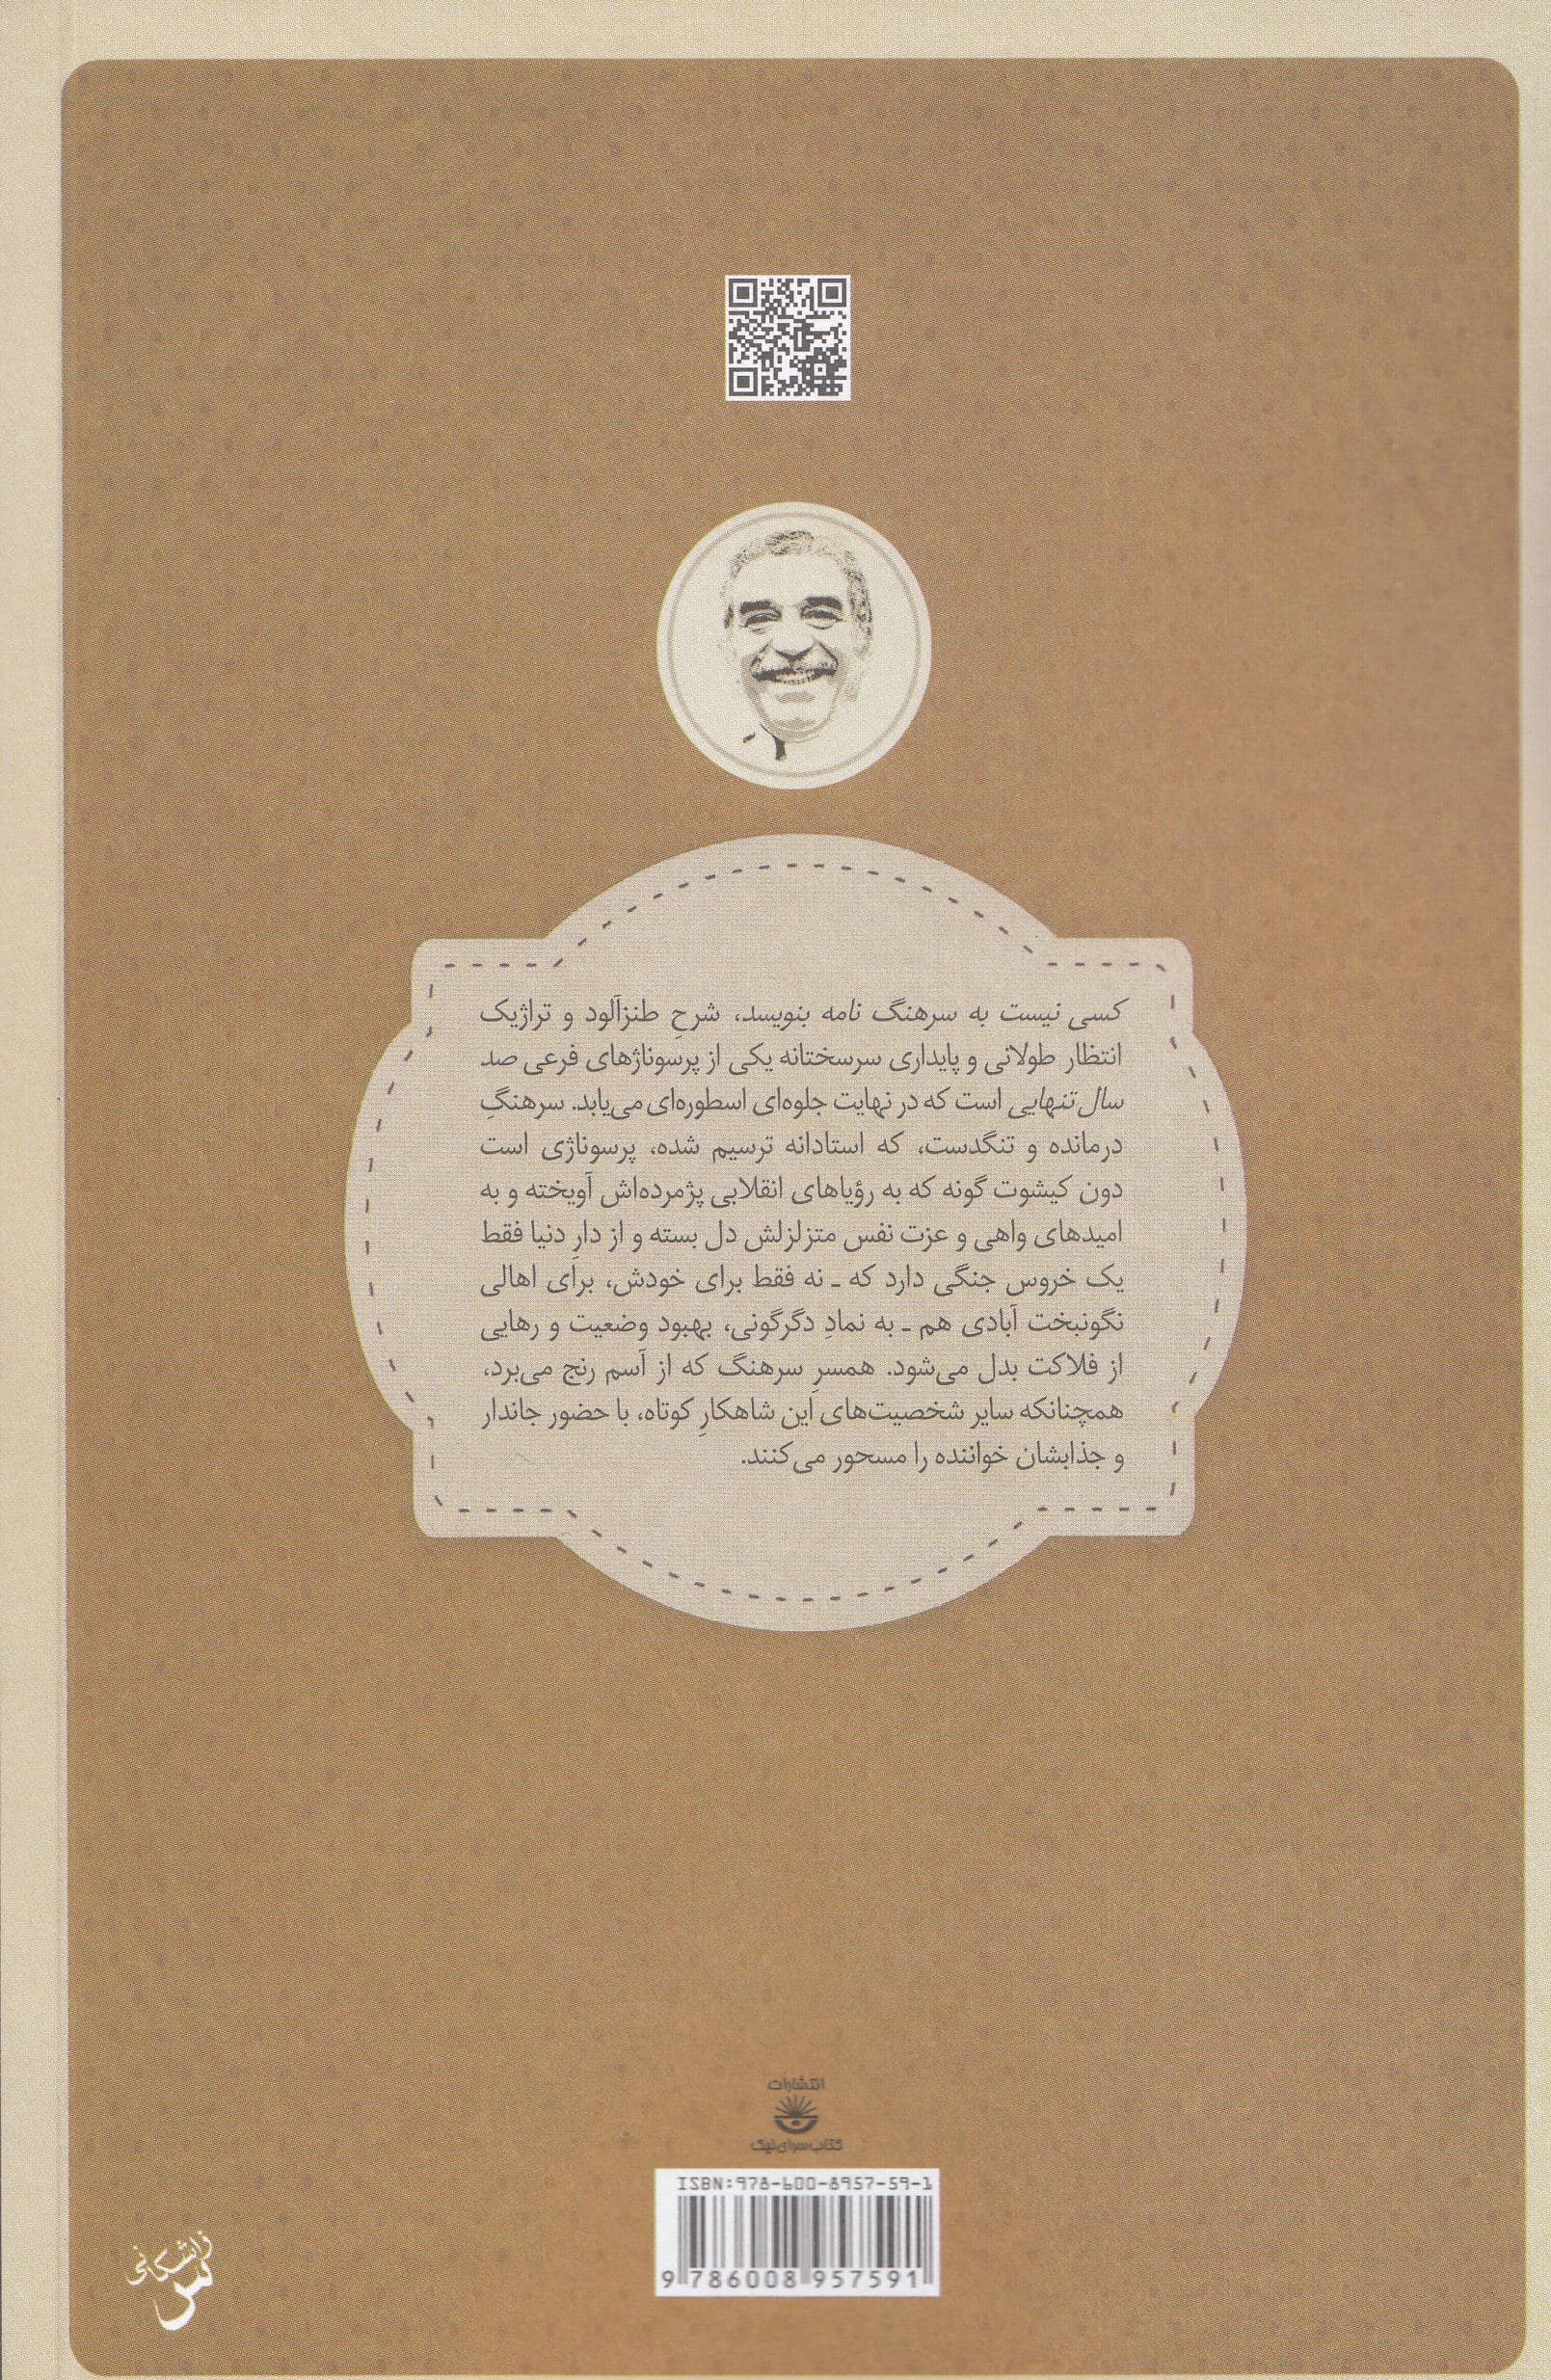 کسی نیست به سرهنگ نامه بنویسد، شرحِ طنزآلود و تراژیک
انتظار طولانی و پایداری سرسختانه یکی از پرسوناژهای فرعی صد
سال تنهایی است که در نهایت جلوه‌ای اسطوره‌ای می‌یابد. سرهنگِ
درمانده و تنگدست، که استادانه ترسیم شده، پرسوناژی است
دون کیشوت گونه که به رؤیاهای انقلابی پژمرده‌اش آویخته و به
امیدهای واهی و عزت نفس متزلزلش دل بسته و از دارِ دنیا فقط
یک خروس جنگی دارد که ـ نه فقط برای خودش، برای اهالی
نگونبخت آبادی هم ـ به نمادِ دگرگونی، بهبود وضعیت و رهایی
از فلاکت بدل می‌شود. همسرِ سرهنگ که از آسم رنج می‌برد،
همچنانکه سایر شخصیت‌های این شاهکارِ کوتاه، با حضور جاندار
و جذابشان خواننده را مسحور می‌کنند.
انتشارات
کتاب‌سرای نیک
ISBN:978-600-8957-59-1
9 786008 957591